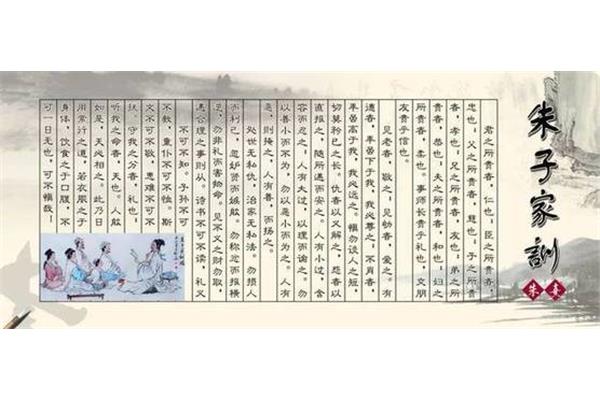 朱子家訓
朱熹
君之所贵者,仁也;臣之所贵者,
忠也;父之所贵者,慈也;子之所贵
者,孝也;兄之所贵者,友也;弟之所
贵者,恭也;夫之所贵者,和也;妇之
所贵者,柔也。事师长贵乎礼也,交朋
友贵乎信也。
见老者,敬之;见幼者,爱之。有
德者,年虽下于我,我必尊之;不肖者,
年虽高于我,我必远之。慎勿谈人之短,
切莫矜己之长。仇者以义解之,怨者以
直报之,随所遇而安之。人有小过,含
容而忍之;人有大过,以理而谕之。勿
以善小而不为,勿以恶小而为之。人有
恶,则掩之;人有善,而扬之。
处世无私仇,治家无私法。勿损人
而利己,勿妒贤而嫉能。勿称忿而报横
逆,勿非礼而害物命。见不义之财勿取,
遇合理之事则从。诗书不可不读,礼义
不可不知。子孙不可
不教,童仆不可不恤。斯
文不可不敬,患难不可不
扶。守我之分者,礼也;
听我之命者,天也。人能
如是,天必相之。此乃日
用常行之道,若衣服之于
身体,饮食之于口腹,不
可一日无也,可不慎哉!